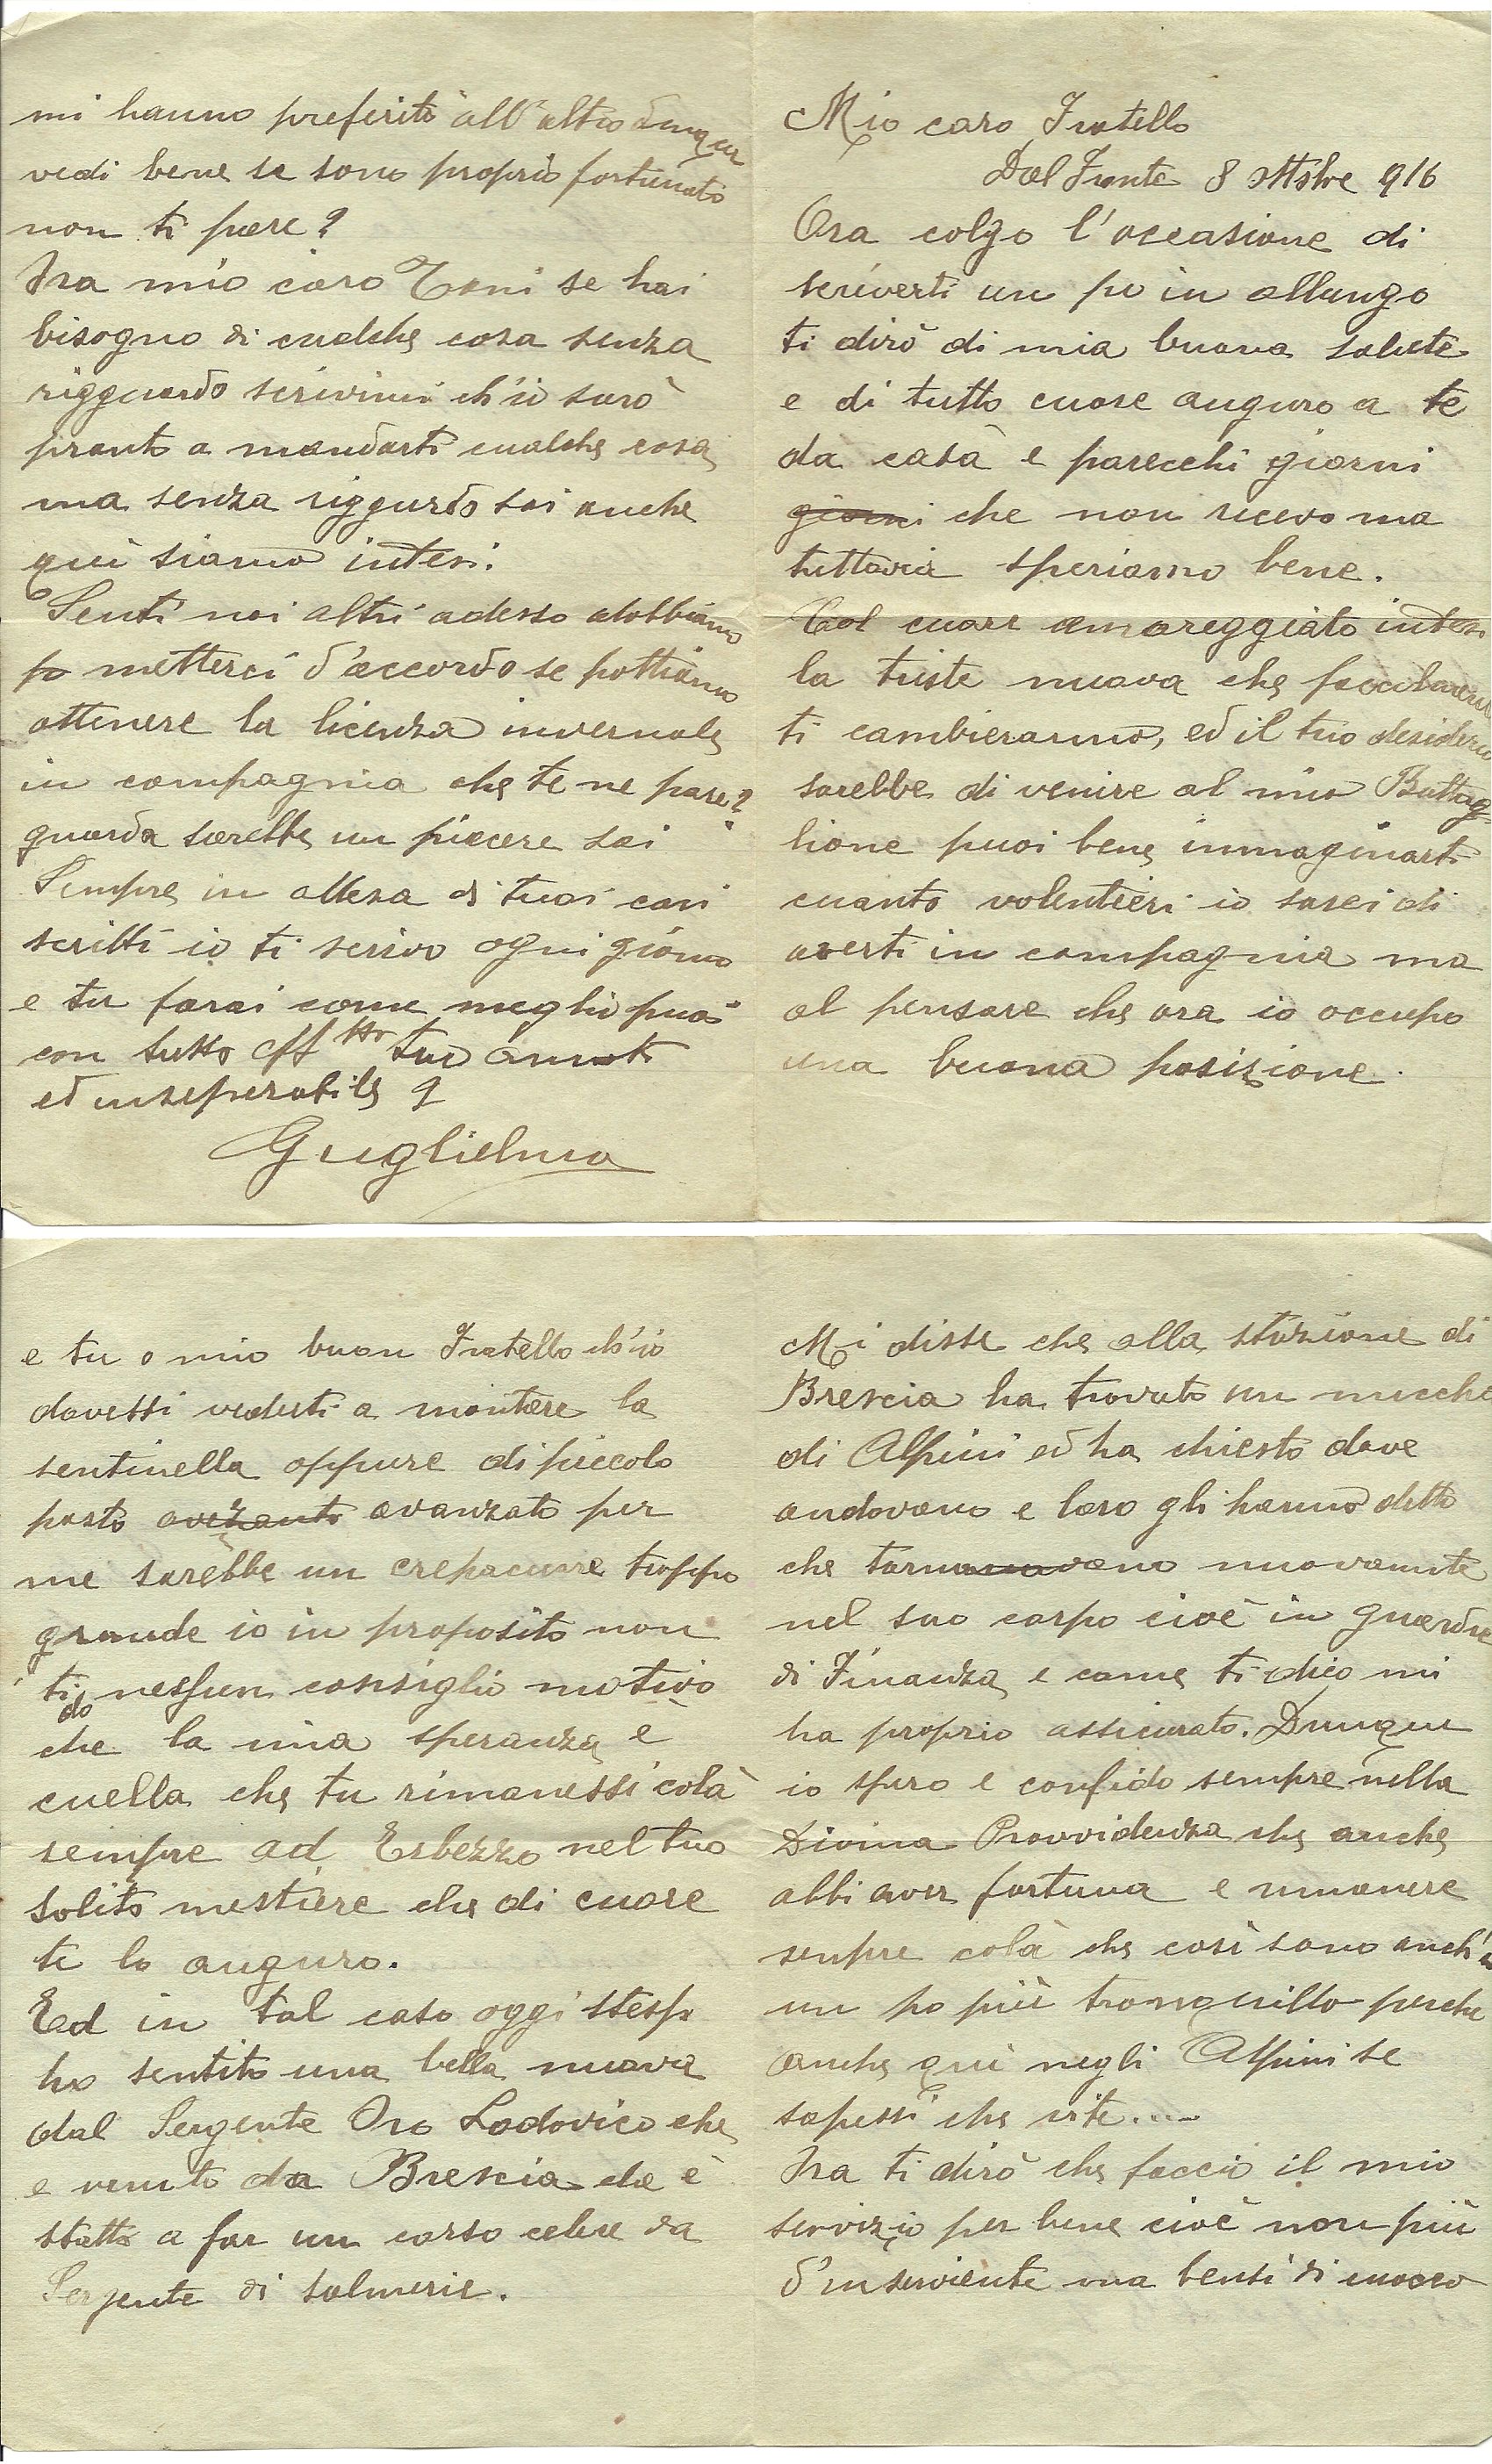 Mio caro Fratello
Dal Fronte 8 ottobre 916
Ora colgo l'occasione di
scriverti un po in allungo
ti dirò di mia buona salute
e di tutto cuore auguro a te
da casà e parecchi giorni
giorni che non ricevo ma
tuttavia speriamo bene.
Col cuore amareggiato intesi
la triste nuova che
ti cambieranno, ed il tuo desiderio
sarebbe di venire al mio Battag-
lione puoi bene immaginarti
cuanto volentieri io sarei di
averti in compagnia ma
al pensare che ora io occupo
una buona posizione.
e tu o mio buon Fratello ch'io
dovessi vederti a montare la
sentinella oppure di piccolo
posto avezanto avanzato per
me sarebbe un crepacuore troppo
grande io in proposito non
ti do nessun consiglio motivo
che la mia speranza è
cuella che tu rimanessi colà
sempre ad Esbezzo nel tuo
solito mestiere che di cuore
te lo auguro.
Ed in tal caso oggi stesso
ho sentito una bella nuova
dal Sergente Oro Lodovico che
e venuto da Brescia che è
statto a far un corso celere da
Sergente di salmerie.
Mi disse che alla stazione di
Brescia ha trovato un mucchio
di Alpini ed ha chiesto dove
andavano e loro gli hanno detto
che tornavano nuovamente
nel suo corpo cioè in guardia
di Finanza e come ti dico mi
ha proprio assicurato. Dunque
io spero e confido sempre nella
Divina Provvidenza che anche
abbi aver fortuna e rimanere
senpre colà che così sono anch'io
un po più tranquillo perche
anche qui negli Alpini se
sapessi che vite....
Ora ti dirò che faccio il mio
servizio per bene cioè non più
d'inserviente ma bensì di cuoco
mi hanno preferito all'altro dunque
vedi bene se sono proprio fortunato
non ti pare?
Ora mio caro Toni se hai
bisogno di cualche cosa senza
rigguardo scrivimi ch'io sarò
pronto a mandarti cualche cosa
ma senza riggurdo sai anche
qui siamo intesi.
Senti noi altri adesso dobbiamo
po metterci d'accordo se pottiamo
ottenere la licenza invernale
in compagnia che te ne pare?
guarda sarebbe un piacere sai
Sempre in attesa di tuoi cari
scritti io ti scrivo ogni giorno
e tu farai come meglio puoi
con tutto afftto tuo
ed inseperabile
Guglielmo